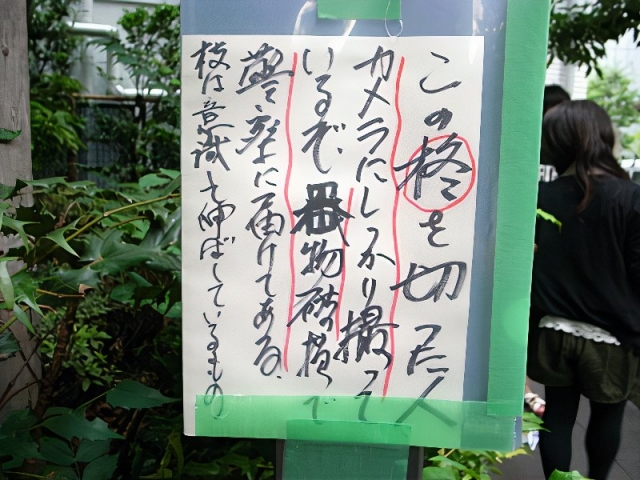 この柊を切った人
カメラにしっかり撮って
いるぞ、器物破損で
警察に届けてある、
枝は意識して伸ばしているもの